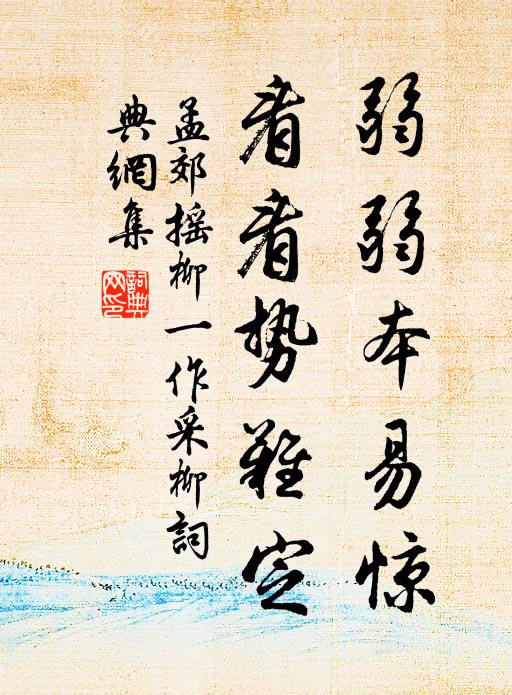 弱弱本易惊
看看势难定
孟郊摇柳一作采柳詞
典網集
詞典网印